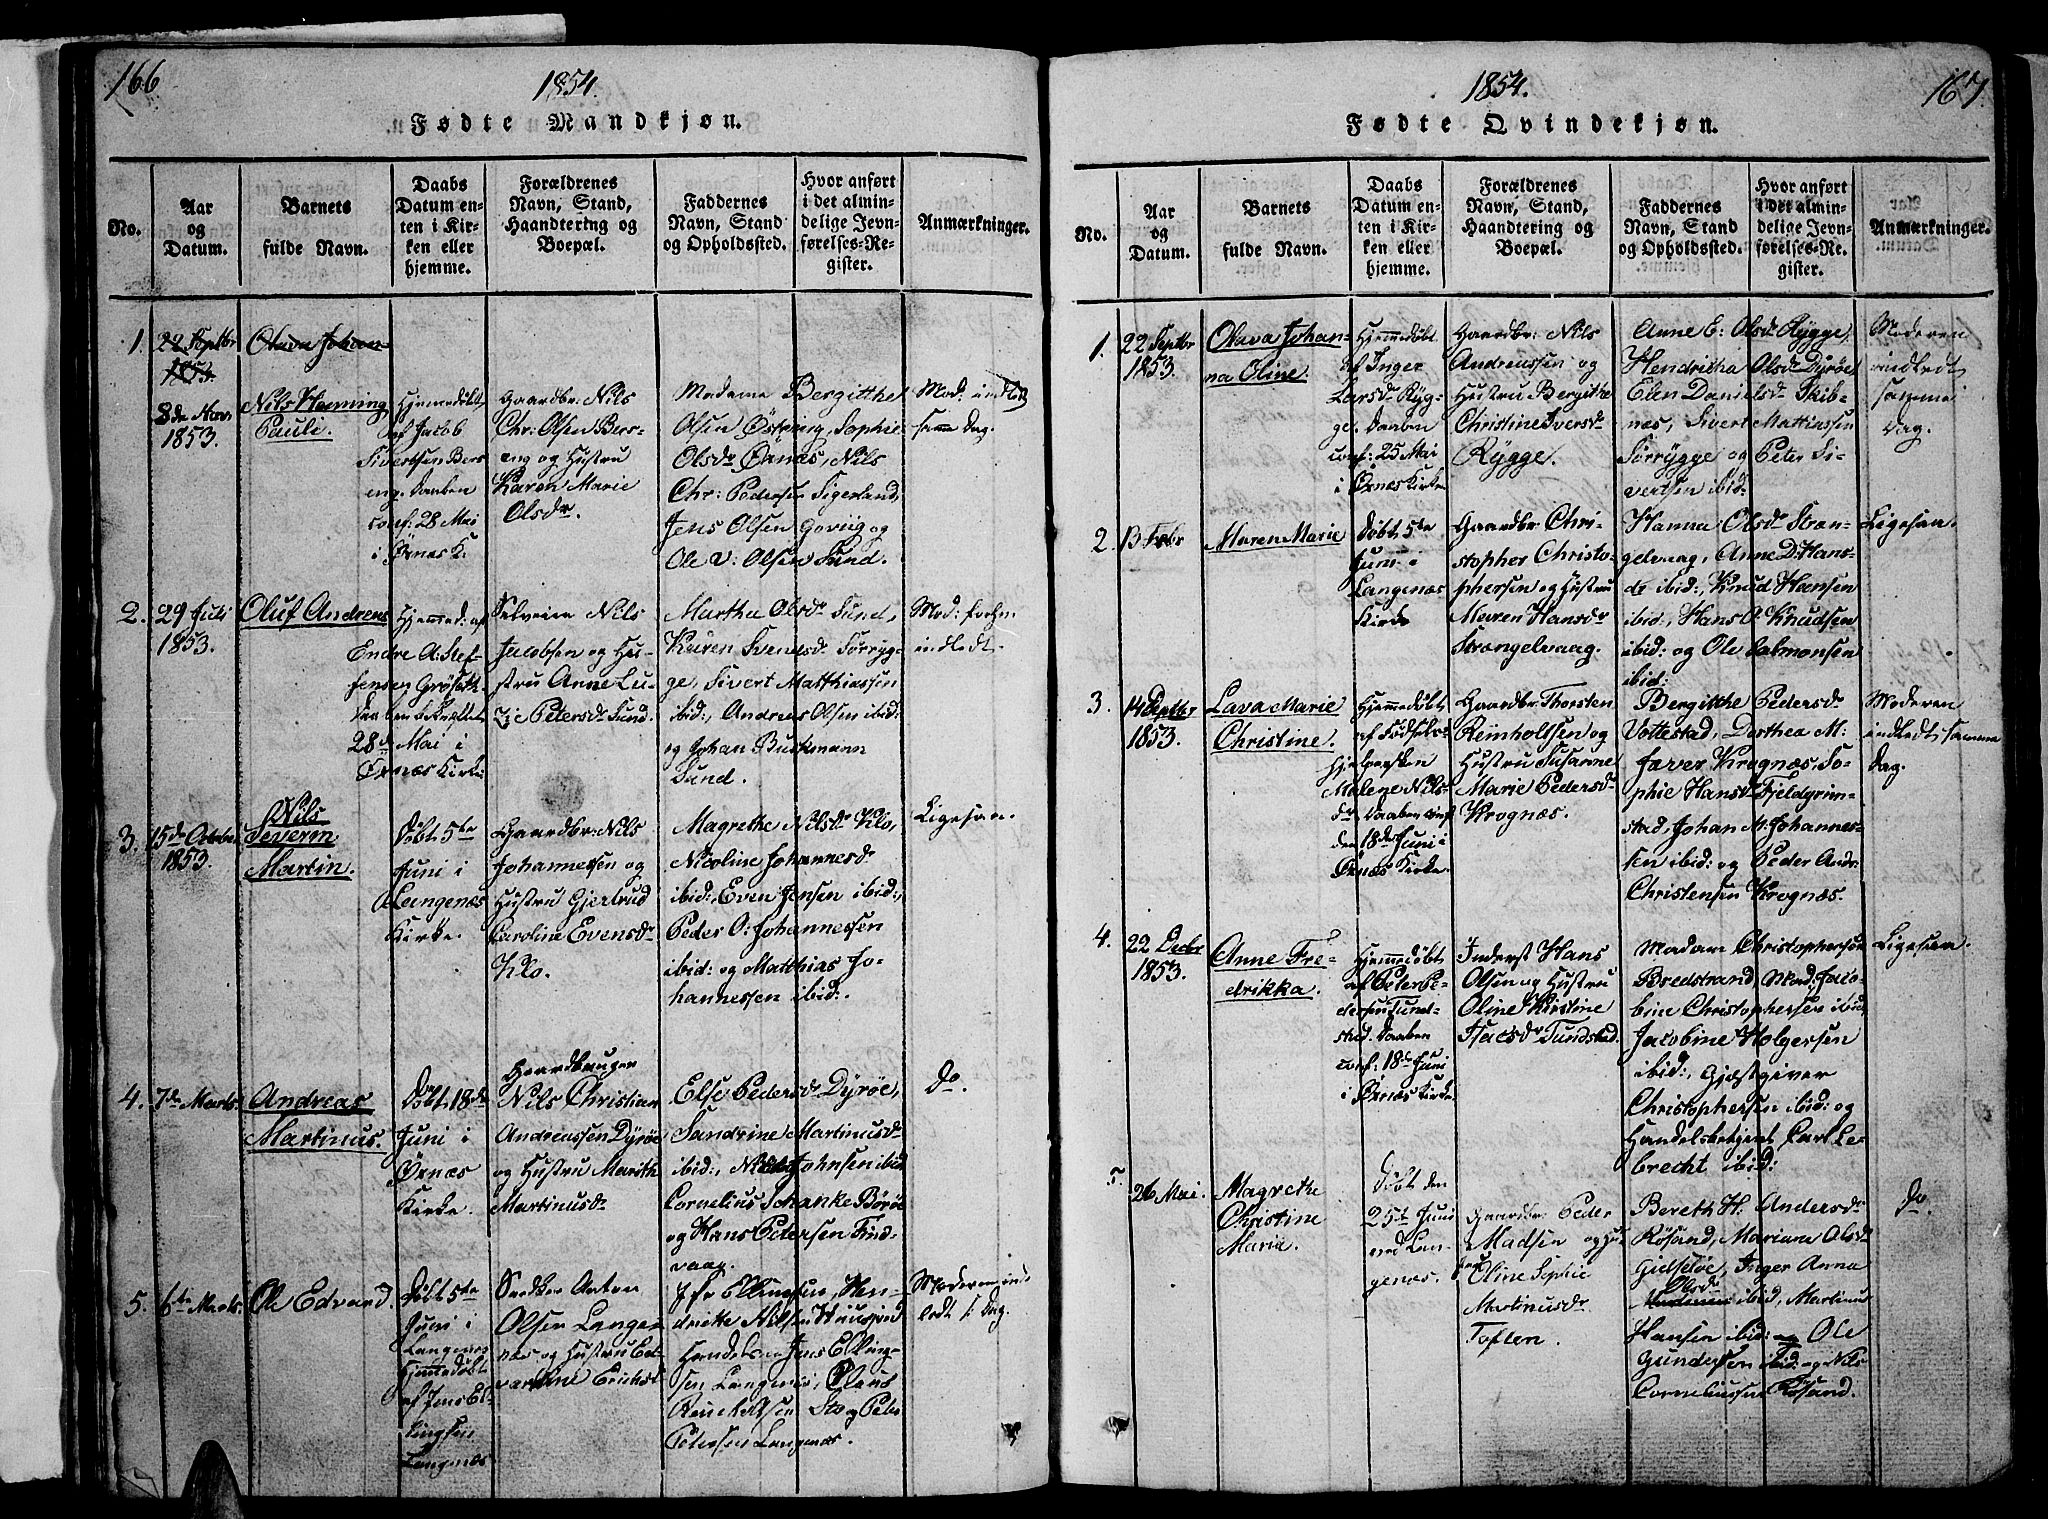 166
1854.
Fødte Mandkjøn.
No.
Aar
og
Datum.
Barnets
fulde Navn.
Daabs
Datum en-
ten i Kir-
ken eller
hjemme.
Forældrenes
Navn, Stand,
Haandtering og
Boepæl.
Faddernes
Navn, Stand
og Opholdssted.
Hvor anført
i det almin-
delige Jevn-
førelses-Re-
gister.
Anmærkninger.
1.
22 Septbr
1853.
8de Novr
1853.
Olava Johan
Nils Henning
Pauli.
Hjemmedøbt
af Jacob
Sivertsen Bers
eng. Daaben
conf: 28 Mai
i Ørnæs K.
Gaardbr: Nils
Chr: Olsen Bers-
eng og Hustru
Karen Marie
Olsdr.
Madame Bergitthe
Olsen Østring, Sophie
Olsdr Ørnæs, Nils
Chr: Pedersen Sigerland,
Jens Olsen Goving og
Ole V: Olsen Sund.
Mod: indledt
samme Dag.
2.
29 Juli
1853.
Oluf Andreas
Hjemmed: af
Endre A: Stef-
fensen Grøseth.
Daaben bekræftet
28de Mai i
Ørnæs Kirke.
Selveier Nils
Jacobsen og Hu-
stru Anne Lu-
zie Petersdr Sund.
Martha Olsdr Sund,
Karen Svensdr Sørryg-
ge, Sivert Matthiassen
ibid:, Andreas Olsen ibid:
og Johan Buckmann
Sund.
Mod: forhen
indledt.
3.
15de Octobr
1853.
Nils
Severin
Martin.
Døbt 5te
Juni i
Langenæs
Kirke.
Gaardbr: Nils
Johannessen og
Hustru Gjertrud
Caroline Evensdr
Klo.
Magrethe Nilsdr Klo,
Nicoline Johannesdr
ibid:, Even Jensen ibid:,
Peder O: Johannessen
ibid: og Matthias Jo-
hannessen ibid:.
Ligesaa.
4.
7de Marts.
Andreas
Martinus.
Døbt 18de
Juni i
Ørnæs
Kirke.
Gaardbruger
Nils Christian
Andreassen Dyrøe
og Hustru Marith
Martinusdr
Else Pedersdr Dyrøe,
Sandrine Martinusdr
ibid:, Nils Johnsen ibid
Cornelius Schanke Børøe
og Hans Petersen Find-
vaag.
Do.
5.
6te Marts.
Ole Edvard.
Døbt 5te
Juni i
Langenæs
Hjemmedøbt
af Jens El-
lingsen
Langenæs
Anton
Olsen Lange-
næs og Hustru
Erichsdr
Jfr Ellingsen, Hen-
drikke Nilsen
Jens Elling-
sen Langenæs, Claus
Reinholtsen Sto og Peder
Petersen Langenæs.
Moderen ind-
ledt s: Dag.
1854.
167.
Fødte Qvindekjøn.
No.
Aar
og
Datum.
Barnets
fulde Navn.
Daabs
Datum en-
ten i Kir-
ken eller
hjemme.
Forældrenes
Navn, Stand,
Haandtering og
Boepæl.
Faddernes
Navn, Stand
og Opholdssted.
Hvor anført
i det almin-
delige Jevn-
førelses-Re-
gister.
Anmærkninger.
1.
22 Septbr
1853.
Olava Johan-
na Oline.
Hjemmedøbt
af Inger
Larsdr Ryg-
ge. Daaben
conf: 25 Mai
i Ørnæs Kirke
Gaardbr: Nils
Andreassen og
Hustru Bergitha
Christine Iversdr
Rygge.
Anne E: Olsdr Rygge,
Hendricha Olsdr Dyrøe
Elen Danielsdr Skib-
næs, Sivert Matthiassen
Sørrygge og Peter Si-
vertsen ibid:
Moderen
indledt
samme
Dag.
2.
13 Febr
Maren Marie
Døbt 5te
Juni i
Langenæs
Kirke
Gaardbr: Chri-
stopher Christo-
phersen og Hustru
Maren Hansdr
Strængelvaag.
Hanna Olsdr Stræn-
gelvaag, Anne D: Hans-
dr ibid:, Knud Hansen
ibid:, Hans O: Knudsen
ibid: og Ole Salmonsen
ibid:
Ligesaa.
3.
14 Septbr
1853.
Lava Marie
Christine.
Hjemmedøbt
af Fødsels-
hjelpersken
Malene Nils-
dr Daaben conf
den 18de Juni i
Ørnæs Kirke.
Gaardbr: Thorsten
Reinholtsen og
Hustru Susanne
Marie Pedersdr
Krognæs.
Bergitthe Pedersdr
Vottestad, Dorthea M:
Jæver Krognæs, So-
phie Hansdr Fjeldgrim-
stad, Johan M: Johannes-
sen ibid: og Peder Andr:
Christensen Krognæs.
Moderen
indledt samme
Dag.
4.
22 Decbr
1853.
Anne Fre-
drikka.
Hjemmedøbt
af Peter Pe-
dersen Tund-
stad. Daaben
conf: 18de Juni
i Ørnæs Kirke
Inderst Hans
Olsen og Hustru
Oline Kirstine
Isacsdr Tundstad.
Madam Christophersen
Bredstrand, Mad: Jaco-
bine Christophersen ibid:
Jacobine Holgersen
ibid:, Gjæstgiver
Christophersen ibid: og
Handelsbetjent Carl Le-
brecht ibid:
Ligesaa.
5.
26 Mai.
Magrethe
Christine
Maria.
Døbt den
25te Juni
ved Lan-
genæs.
Gaardbr: Peder
Madsen og Hu-
stru
Oline Sophie
Martinusdr
Toften.
Bereth H: Andersdr
Røsand, Mariane Olsdr
Guldsløe, Inger Anna
Olsdr
Martinus ibid, Martinus
Hansen ibid: og Ole
Gundersen ibid: og Nils
Corneliussen Røsand.
Do.